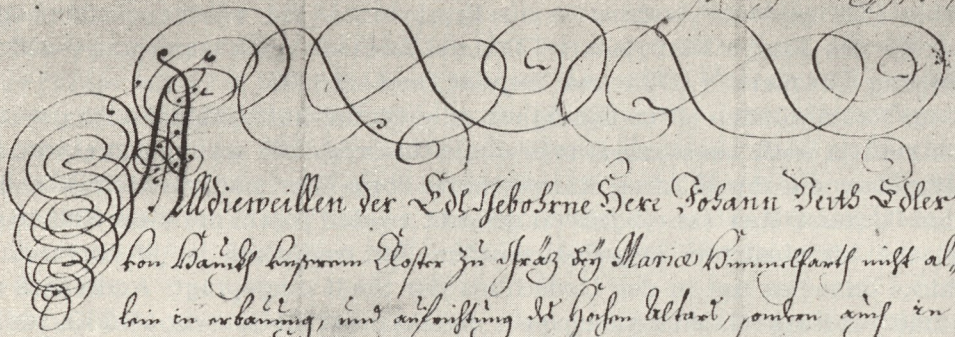 Alldieweillen der Edl Gebohrne Herr Johann Veith Edler
von Hauckh unserem Closter zu Gräz bey Mariæ Himmelfarth nicht al-
lein in erbauung, und aufrichtung des Hochen Altars, sondern auch in